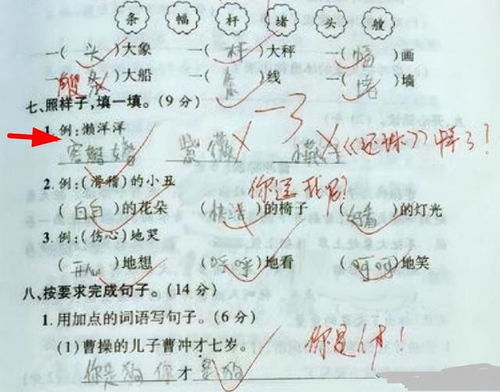 条 幅 杆 堵 头 艘
一(头)大象 一(杆)大秤 一(幅)画
一(艘)大船 一( )线 一(堵)墙
七、照样子,填一填。(9分)
1. 例:懒洋洋
紫薇 《还珠》 了?
2. 例:(滑稽)的小丑 你逗我呢?
(白白)的花朵 ( )的椅子 ( )的灯光
3. 例:(伤心)地哭
(开心)地想 (呼呼)地看 (呵呵)地笑
八、按要求完成句子。(14分)
1. 用加点的词语写句子。(6分)
(1)曹操的儿子曹冲才七岁。 你是人才!
你是狗 你才